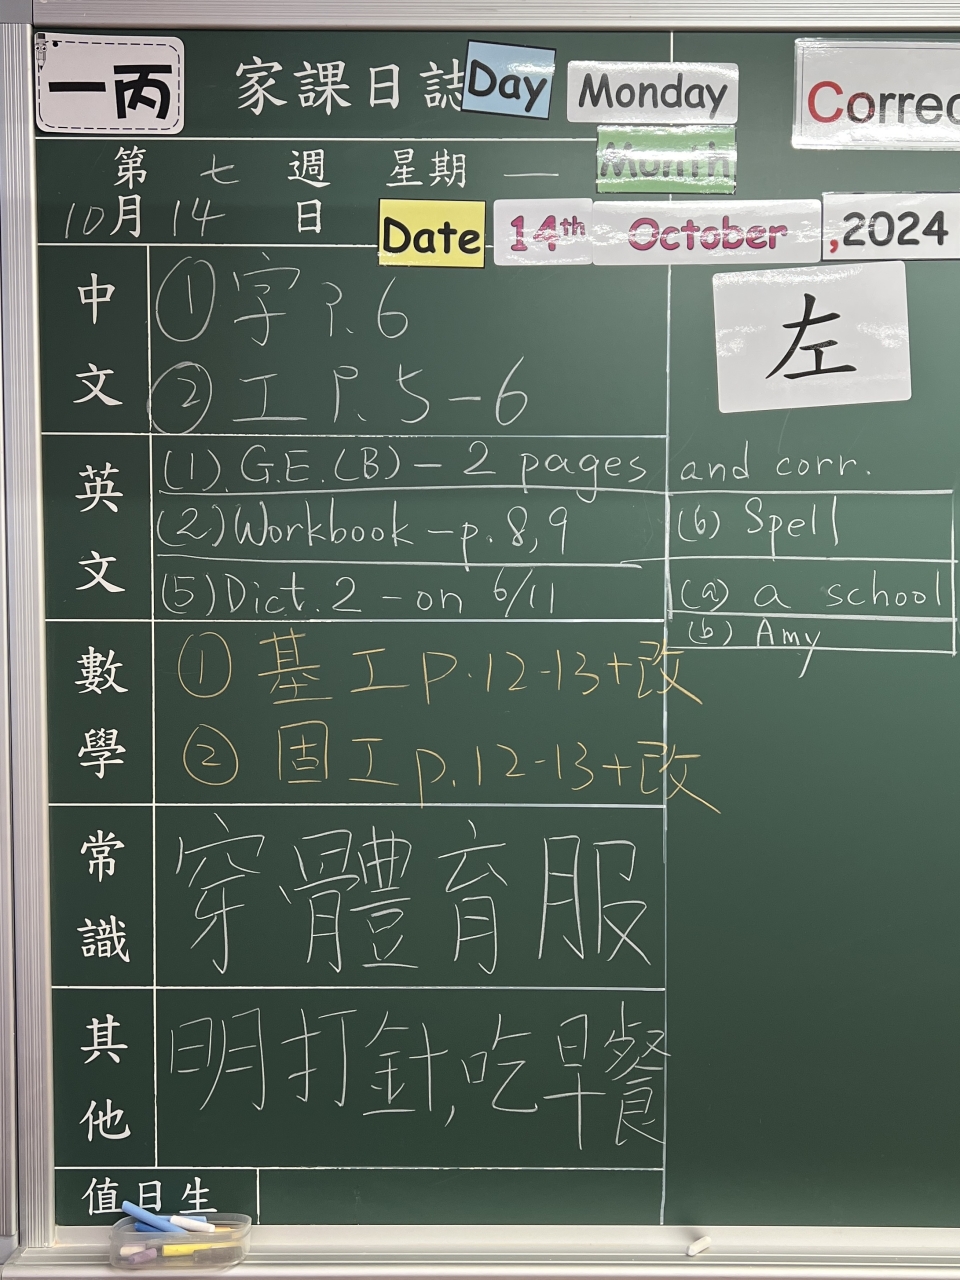 一丙 家課日誌 Day Monday Correc
第 七 週 星期 一 Month
10月 14 日 Date 14th October ,2024
左
中文
① 字 P. 6
② 工 P. 5-6
英文
(1). G.E.(B) - 2 pages and corr.
(2) Workbook - p. 8, 9
(5) Dict. 2 - on 6/11
(6) Spell
(a) a school
(b) Amy
數學
① 基工 p. 12-13+改
② 固工 p. 12-13+改
常識
穿體育服
其他
明打針, 吃早餐
值日生